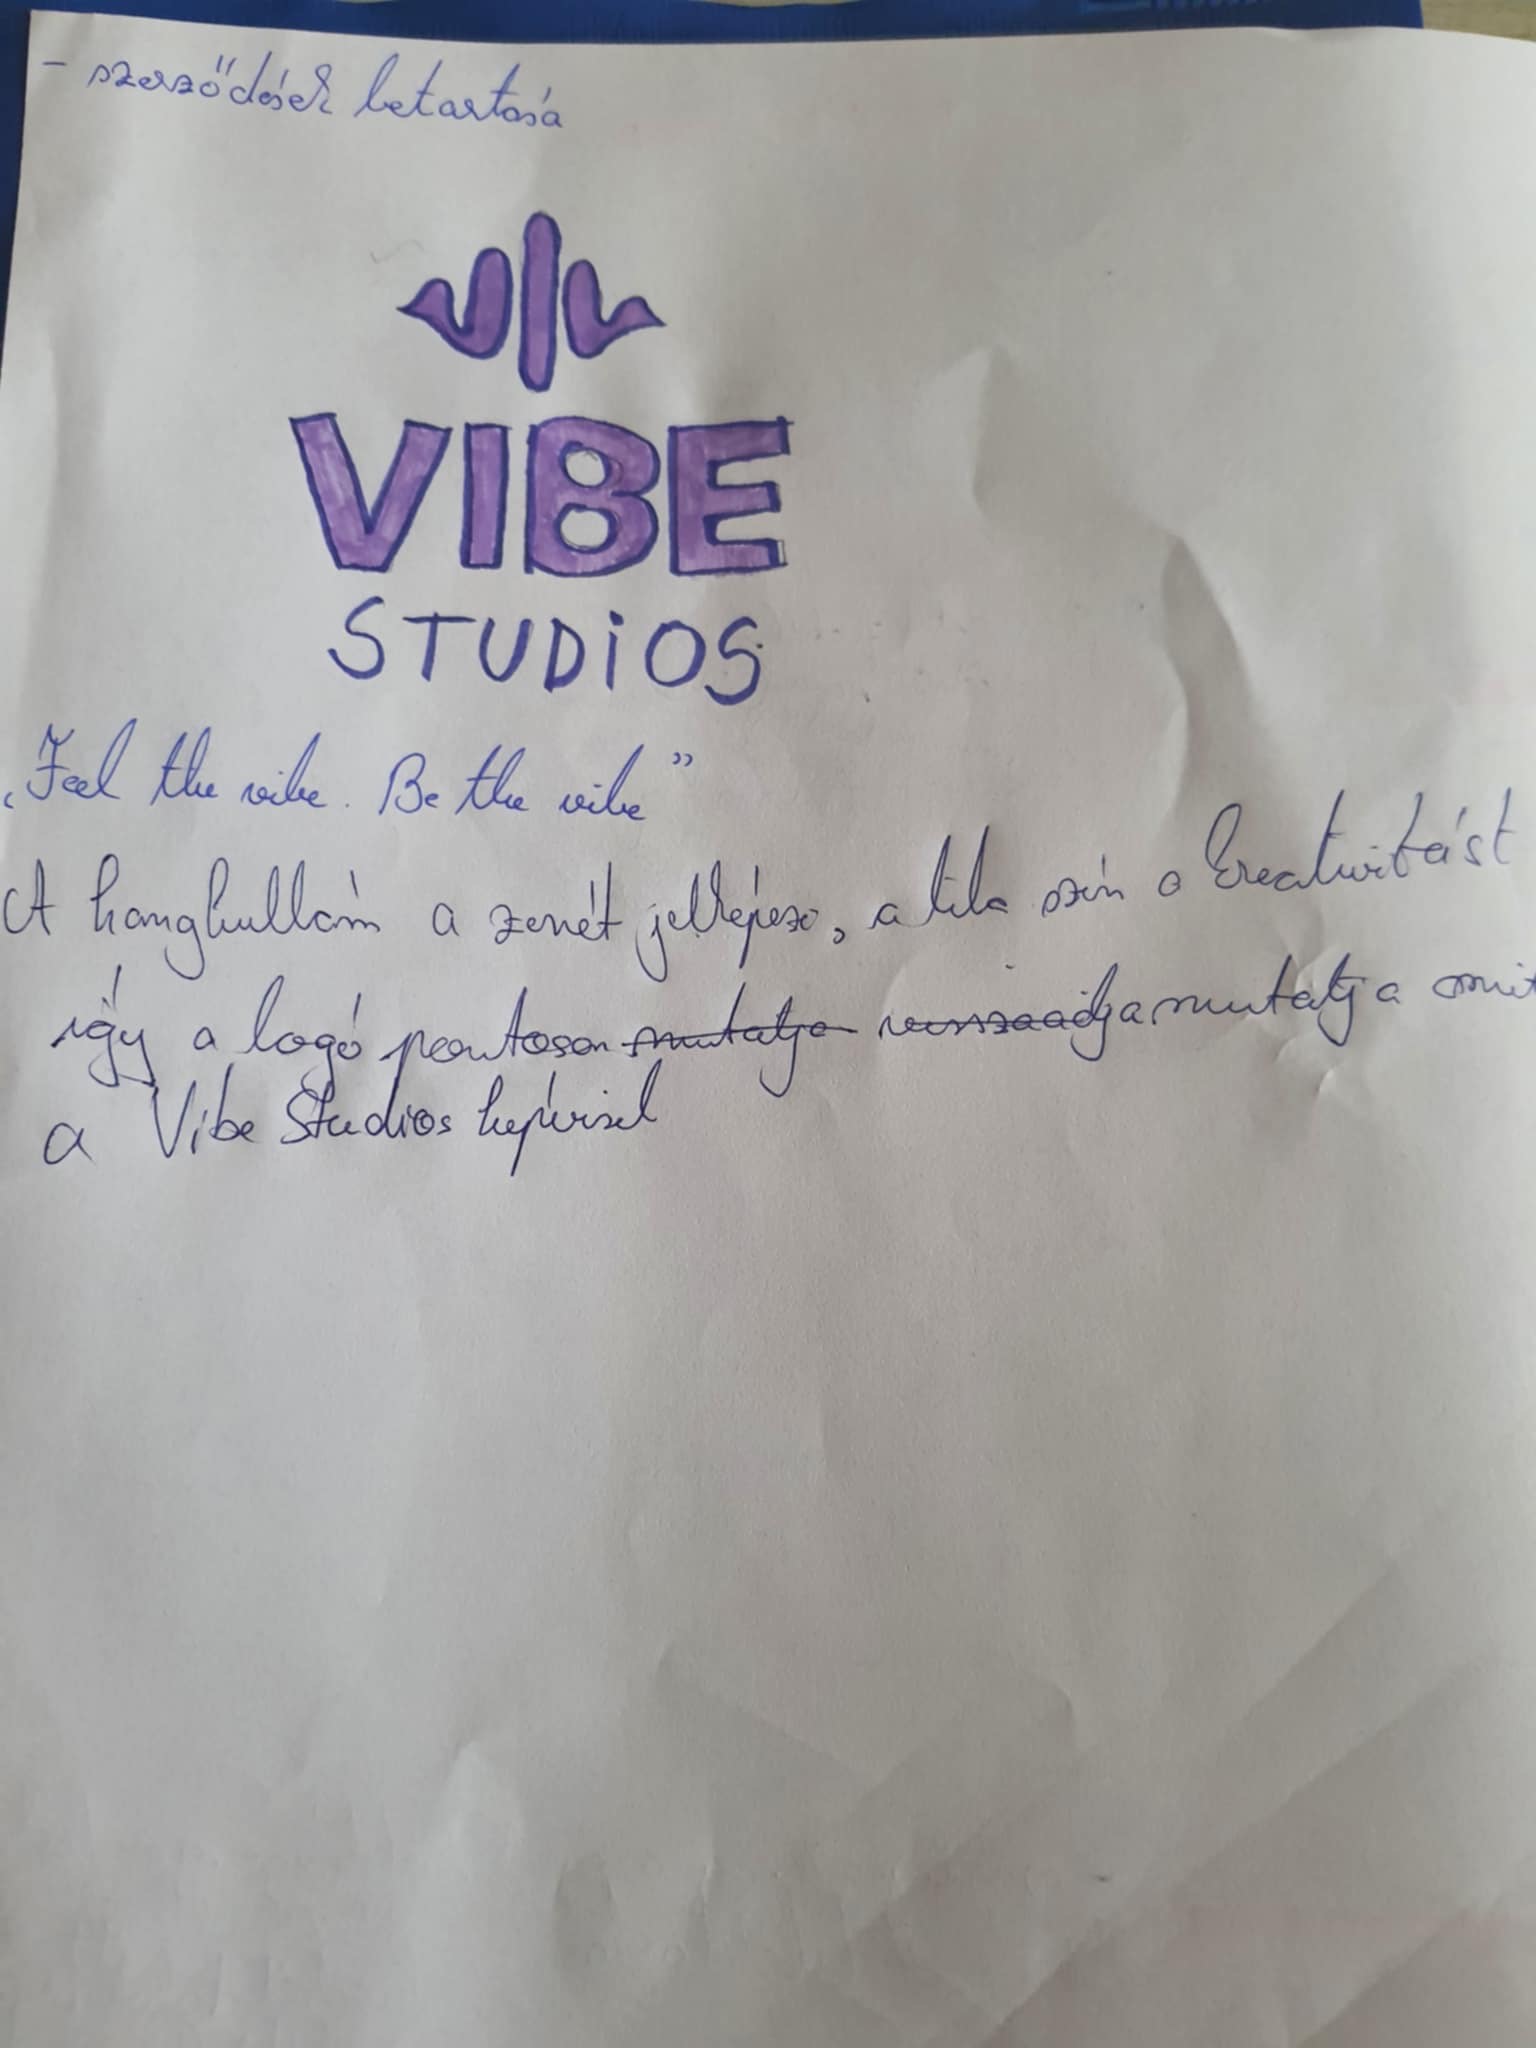 - szerződések betartása
VIBE
STUDiOS
„Feel the vibe. Be the vibe”
A hanghullám a zenét jelképezi, a lila szín a kreativitást
így a logó pontosan mutatja visszaadja mutatja mit
a Vibe Studios képvisel